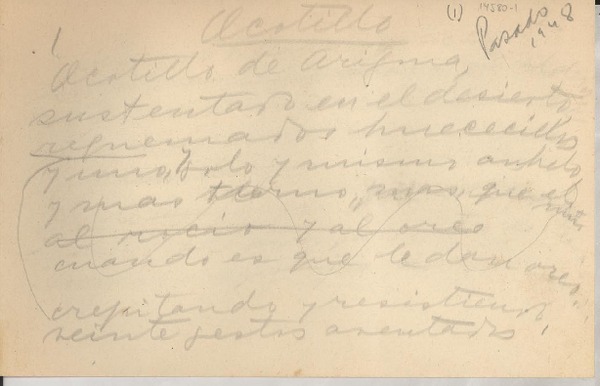 (1) 14580-1
Pasado
1948
1
Ocotillo
Ocotillo de Arizona,
sustentado en el desierto,
requemados huececillos
y uno, solo y mismo anhelo
y mas que el
al rocío y al oreo
cuando es que le dan oreo.
crepitando y resistiendo,
veinte gestos aventados,